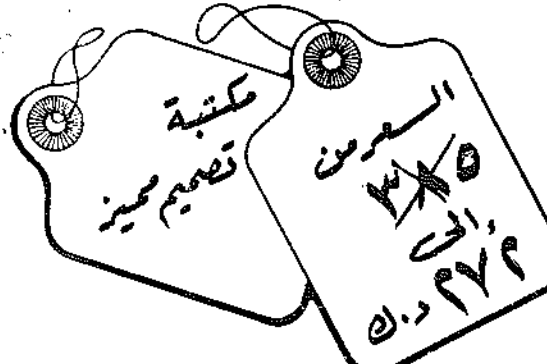 مكتبة
تصميم مميز
السعر من
٣٨٥
إلى
٢٧٢ د.ك